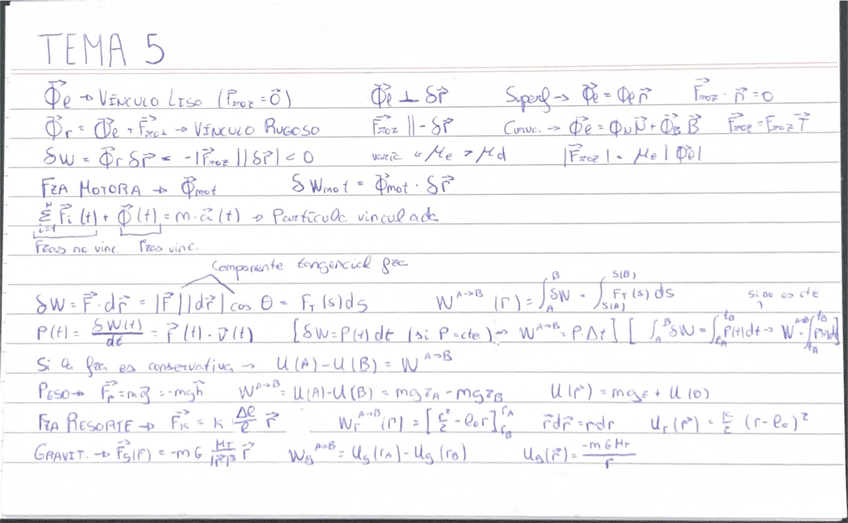 TEMA 5
Φ⃗e → VÍNCULO LISO (F⃗roz = 0⃗)   Φ⃗e ⊥ δr⃗   Superf → Φ⃗e = Φe n⃗   F⃗roz · n⃗ = 0
Φ⃗r = Φ⃗e + F⃗roz → VÍNCULO RUGOSO   F⃗roz || -δr⃗   Curva. → Φ⃗e = ΦN N⃗ + ΦB B⃗   F⃗roz = Froz T⃗
δW = Φ⃗r δr⃗ = -|F⃗roz||δr⃗| < 0   μe > μd   |F⃗roz| = μe |Φ⃗e|
FZA MOTORA → Φ⃗mot   δWmot = Φ⃗mot · δr⃗
Σ F⃗i(t) + Φ⃗(t) = m·a⃗(t) → Partícula vinculada
Fzas no vinc.   Fzas vinc.
Componente tangencial fza
δW = F⃗·dr⃗ = |F⃗||dr⃗| cos θ = FT(s)ds   W^A→B (Γ) = ∫_A^B δW = ∫_S(A)^S(B) FT(s) ds   si no es cte
P(t) = δW(t)/dt = F⃗(t)·v⃗(t)   [δW = P(t)dt (si P=cte) → W^A→B = P·Δt] [∫_A^B δW = ∫_tA^tB P(t)dt → W^A→B = ∫_tA^tB P(t)dt]
Si la fza es conservativa → U(A) - U(B) = W^A→B
PESO → F⃗p = mg⃗ = -mgk⃗   W^A→B = U(A) - U(B) = mgzA - mgzB   U(r⃗) = mgz + U(0)
FZA RESORTE → F⃗k = k Δl/l r⃗   Wr^A→B (Γ) = [r²/2 - l0r]_rB^rA   r⃗dr⃗ = rdr   Ur(r⃗) = k/2 (r - l0)²
GRAVIT. → F⃗g(r⃗) = -mG MT/|r⃗|³ r⃗   Wg^A→B = Ug(rA) - Ug(rB)   Ug(r⃗) = -mGMT/r